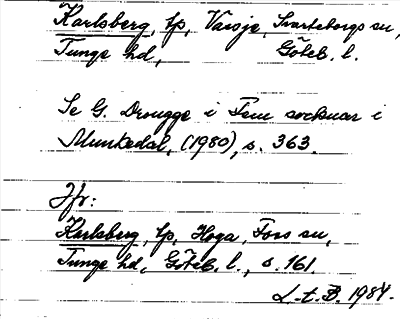 Karlsberg, lp, Vassje, Svarteborgs sn,
Tunge hd, Göteb. l.
Se G. Drougge i Fem socknar i
Munkedal, (1980), s. 363.
Jfr:
Karlsberg, lp, Hoga, Foss sn,
Tunge hd, Göteb. l., s. 161.
L-t. B. 1984.